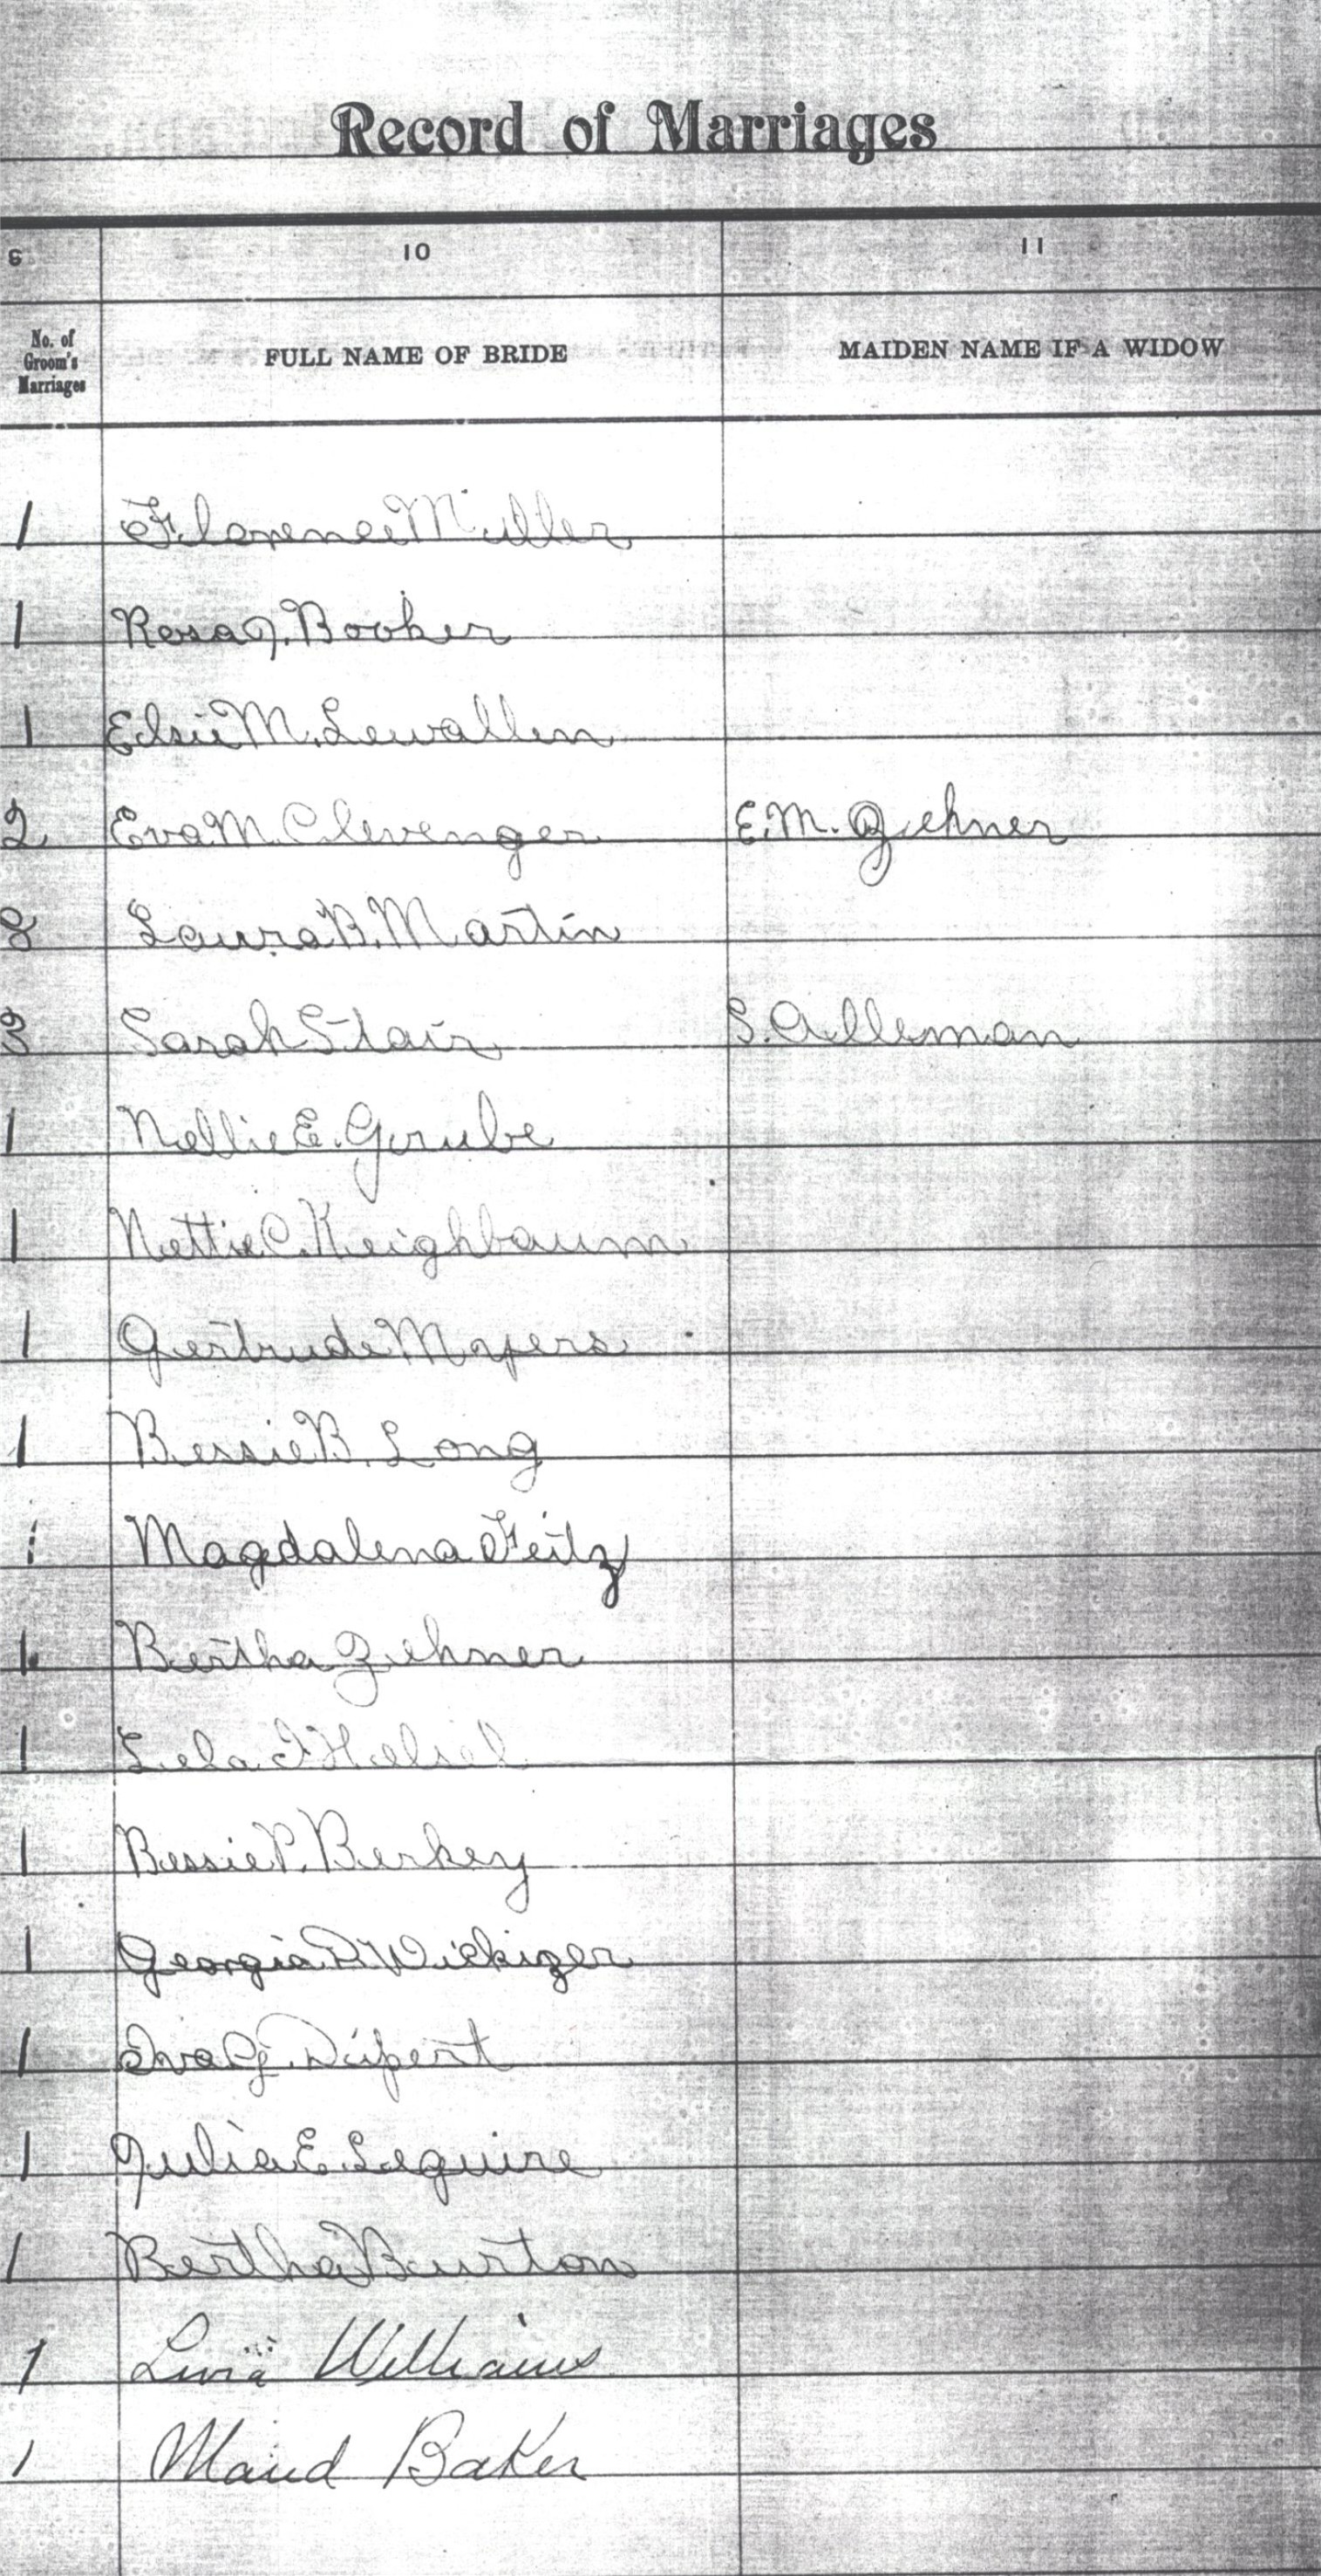 Record of Marriages
10 11
No. of Groom's Marriages FULL NAME OF BRIDE MAIDEN NAME IF A WIDOW
1 Florence Miller
1 Rosa J. Booker
1 Elsie M. Lewallen
2 Eva M. Clevenger E. M. Zehner
2 Laura B. Martin
3 Sarah Stair S. Alleman
1 Nellie E. Grube
1 Nettie C. Keighbaum
1 Gertrude Myers
1 Bessie B. Long
1 Magdalena Feitz
1 Bertha Zehner
1 Lela Helsel
1 Bessie P. Berkey
1 Georgia D Wickizer
1 Iva G. Dipert
1 Julia E. Leguire
1 Bertha Burton
1 Williams
1 Maud Baker